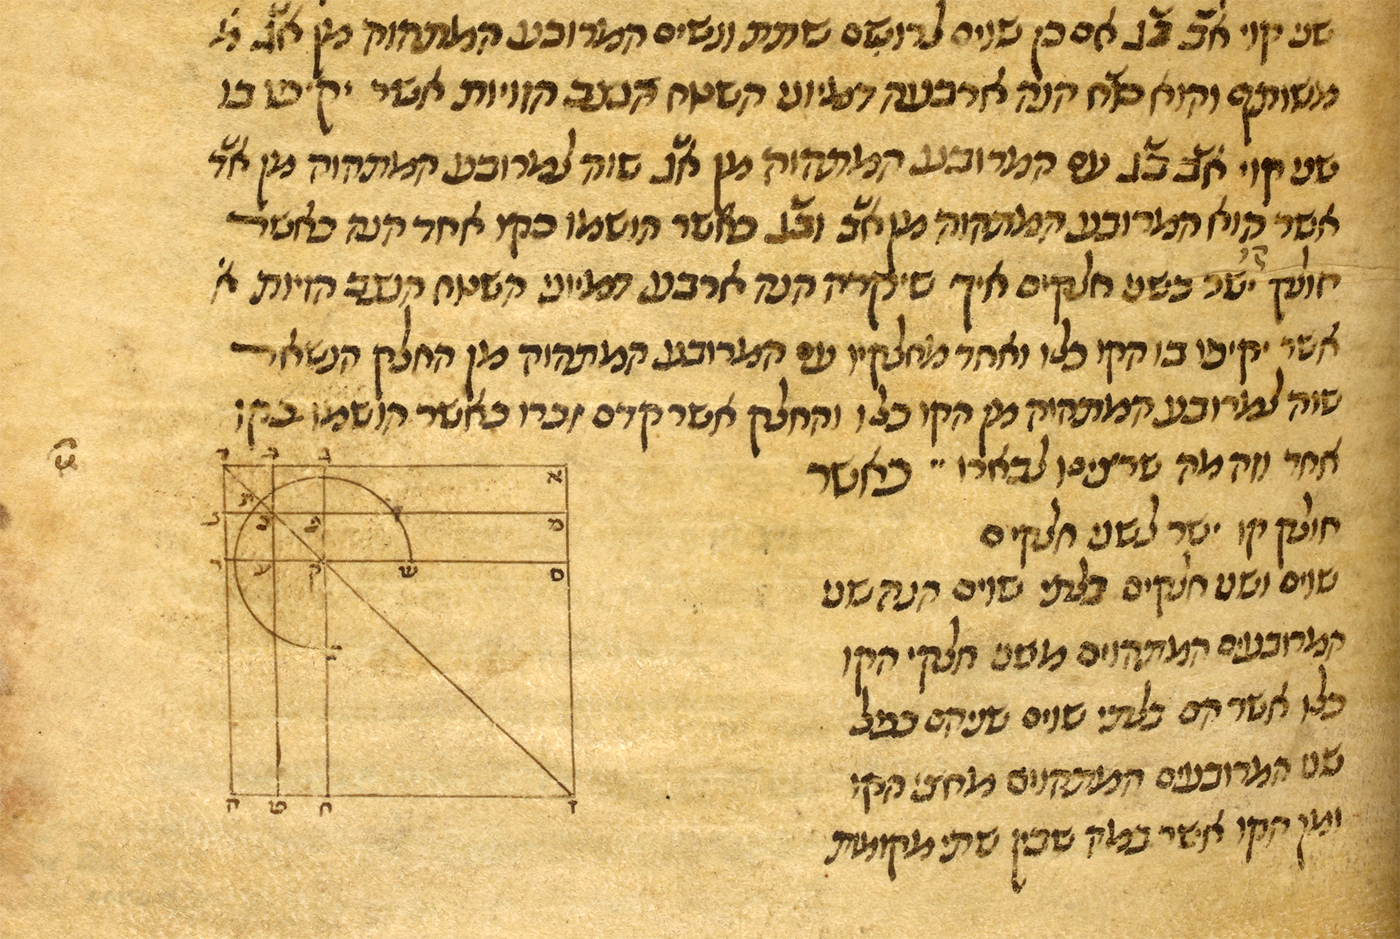 שני קוי אב בג אם כן שוים לרושם שתת ונשים המרובע המתהוה מן אג
משותף והוא סח הנה ארבעה דמיוני השטח הנצב הזויות אשר יקיפו בו
שני קוי אב בג עם המרובע המתהוה מן אג שוה למרובע המתהוה מן אד
אשר הוא המרובע המתהוה מן אב ובג כאשר הושמו כקו אחד הנה כאשר
חולק קו ישר בשני חלקים איך שיקרה הנה ארבע דמיוני השטח הנצב הזויות
אשר יקיפו בו הקו כלו ואחד מחלקיו עם המרובע המתהוה מן החלק הנשאר
שוה למרובע המתהוה מן הקו כלו והחלק אשר קדם זכרו כאשר הושמו כקו
אחד וזה מה שרצינו לבארו כאשר
חולק קו ישר לשני חלקים
שוים ושני חלקים בלתי שוים הנה שני
המרובעים המתהוים משני חלקי הקו
כלו אשר הם בלתי שוים שניהם כפל
שני המרובעים המתהוים מחצי הקו
ומן הקו אשר במה שבין שתי מקומות
ג ב
א
מ
ס
ש
ק
ע
ת
ה ט ח ד